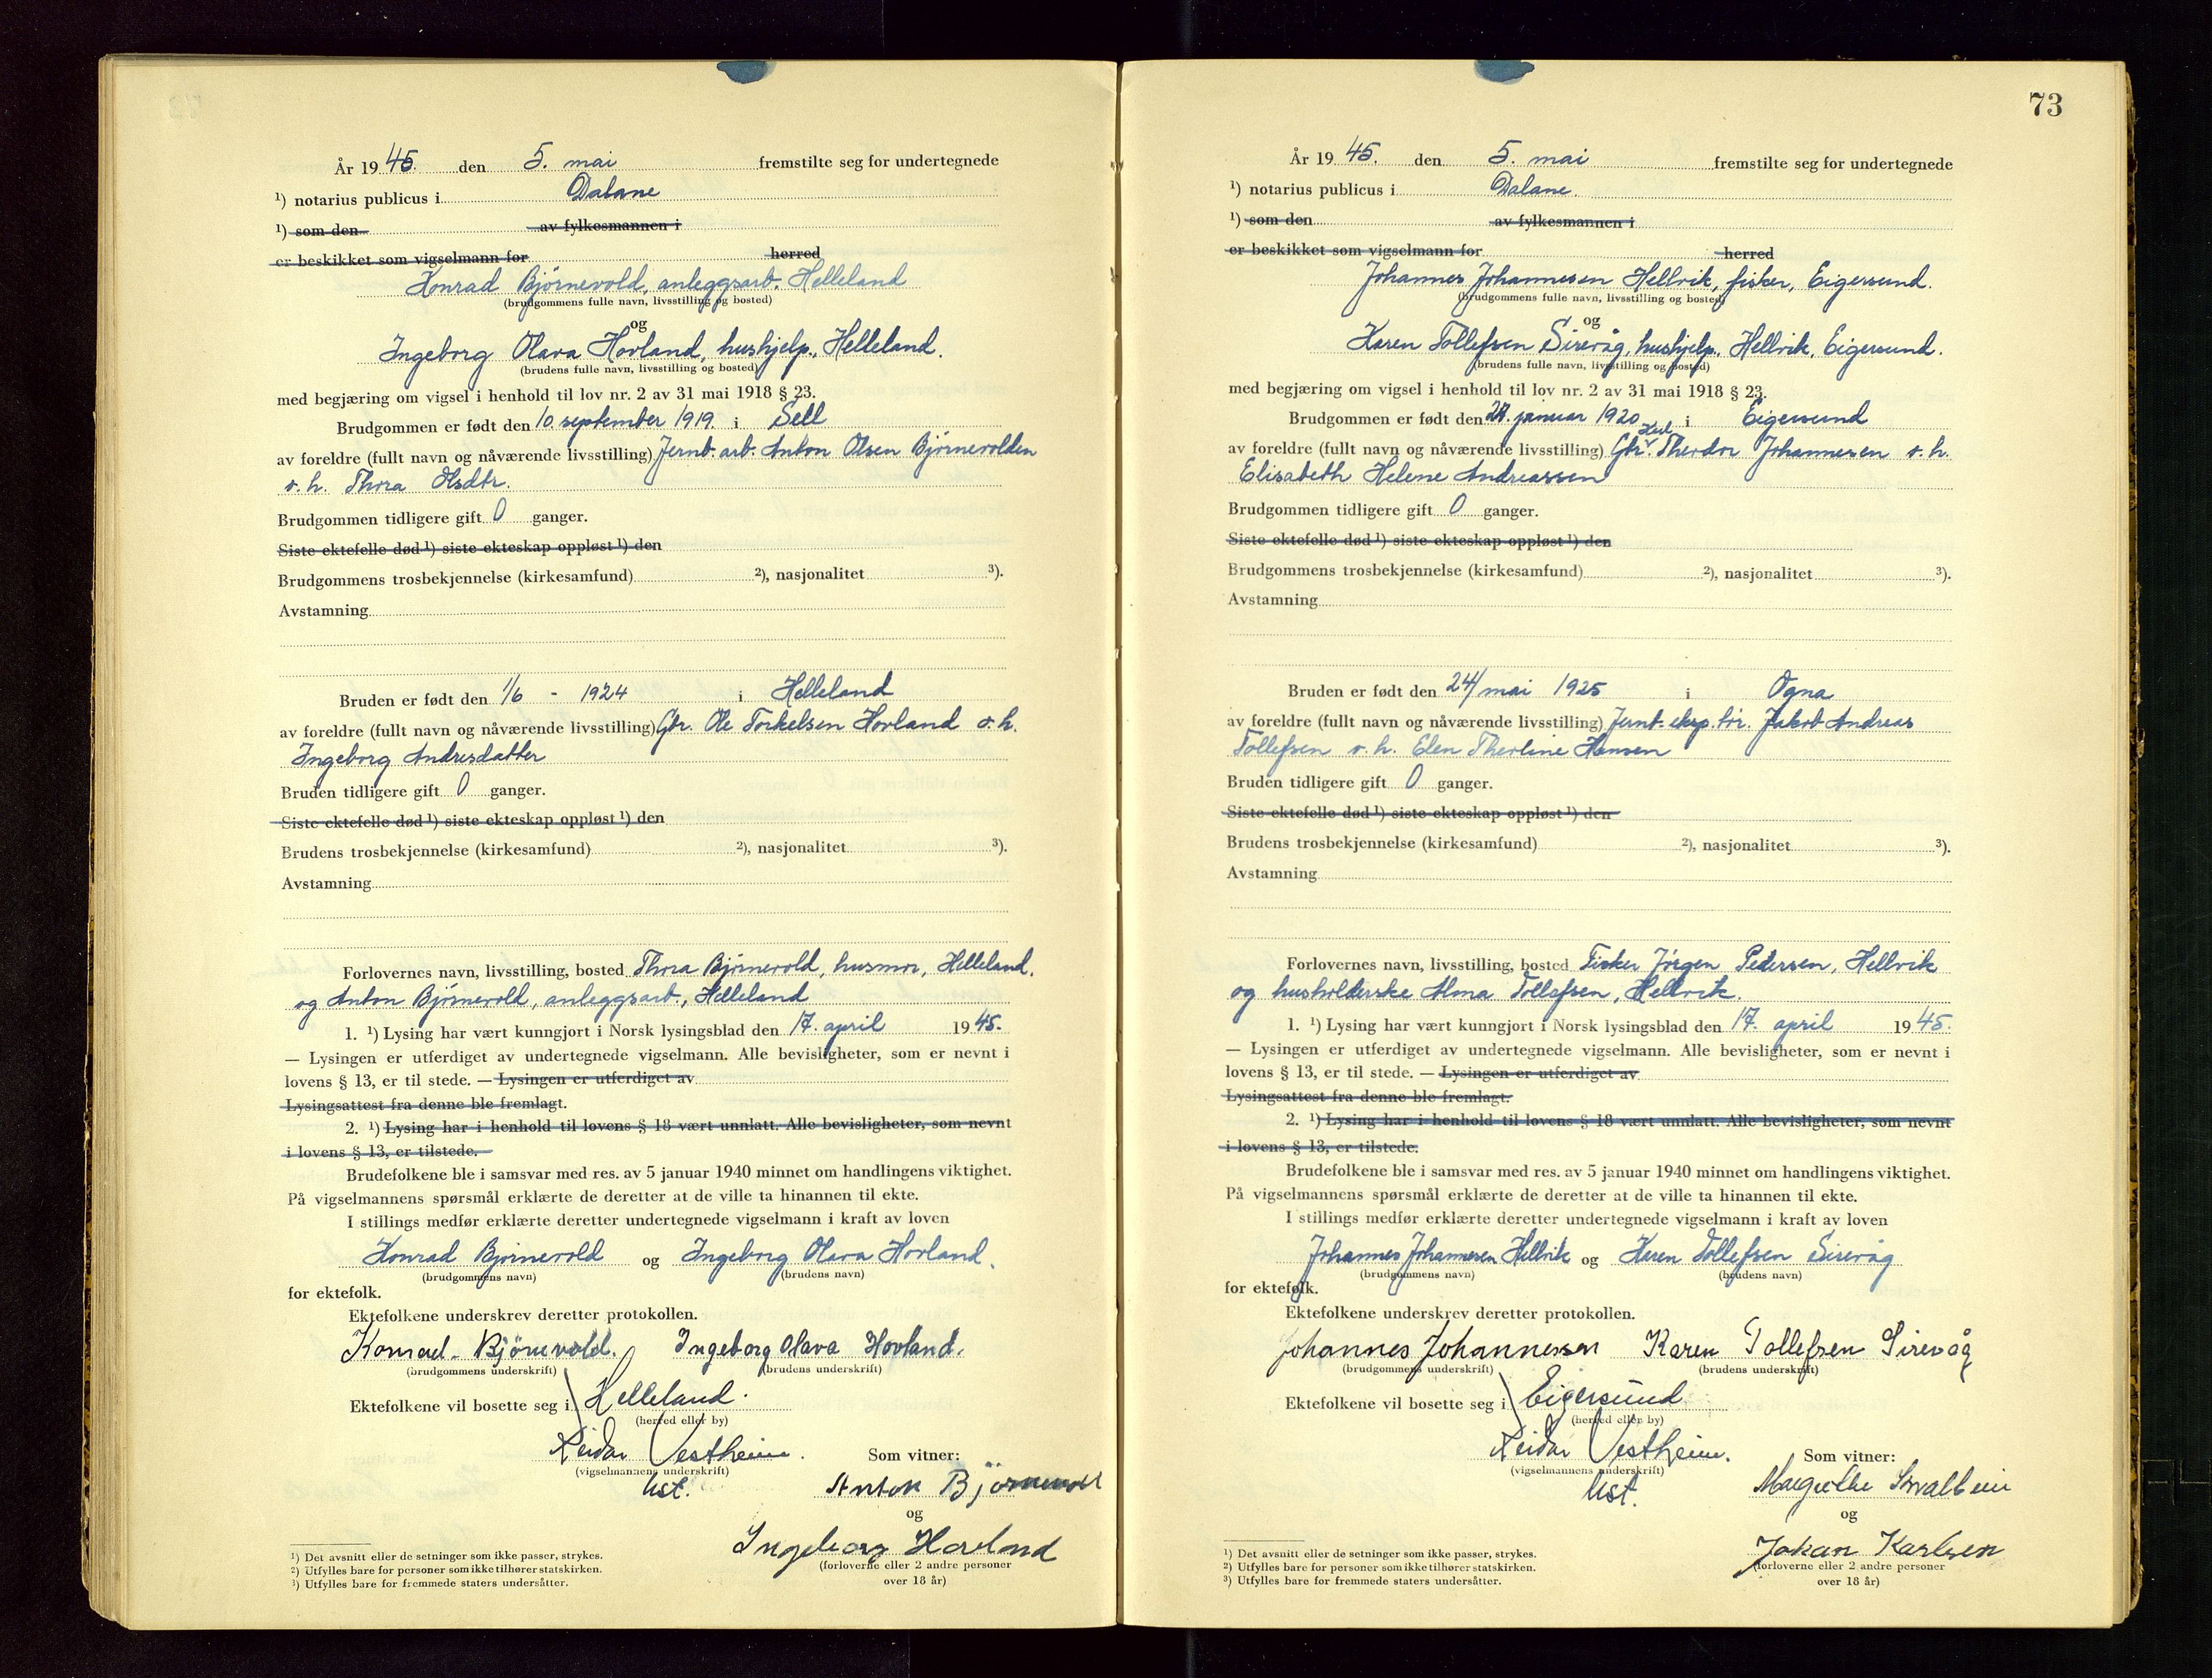 År 1945. den 5. mai fremstilte seg for undertegnede
¹) notarius publicus i Dalane
¹) som den av fylkesmannen i
er beskikket som vigselmann for herred
Konrad Bjørnevold, anleggsarb. Helleland
(brudgommens fulle navn, livsstilling og bosted)
og
Ingeborg Olava Hovland, hushjelp, Helleland.
(brudens fulle navn, livsstilling og bosted)
med begjæring om vigsel i henhold til lov nr. 2 av 31 mai 1918 § 23.
Brudgommen er født den 10 september 1919 i Sell
av foreldre (fullt navn og nåværende livsstilling) Jernb. arb. Anton Olsen Bjørnevolden
o. h. Thora Olsdtr.
Brudgommen tidligere gift 0 ganger.
Siste ektefelle død ¹) siste ekteskap oppløst ¹) den
Brudgommens trosbekjennelse (kirkesamfund) ²), nasjonalitet ³).
Avstamning
Bruden er født den 1/6 - 1924 i Helleland
av foreldre (fullt navn og nåværende livsstilling) Gbr. Ole Torkelsen Hovland o. h.
Ingeborg Andresdatter
Bruden tidligere gift 0 ganger.
Siste ektefelle død ¹) siste ekteskap oppløst ¹) den
Brudens trosbekjennelse (kirkesamfund) ²), nasjonalitet ³).
Avstamning
Forlovernes navn, livsstilling, bosted Thora Bjørnevold, husmor, Helleland,
og Anton Bjørnevold, anleggsarb., Helleland
1. ¹) Lysing har vært kunngjort i Norsk lysingsblad den 17. april 1945.
— Lysingen er utferdiget av undertegnede vigselmann. Alle bevisligheter, som er nevnt i
lovens § 13, er til stede. — Lysingen er utferdiget av
Lysingsattest fra denne ble fremlagt.
2. ¹) Lysing har i henhold til lovens § 18 vært unnlatt. Alle bevisligheter, som nevnt
i lovens § 13, er tilstede.
Brudefolkene ble i samsvar med res. av 5 januar 1940 minnet om handlingens viktighet.
På vigselmannens spørsmål erklærte de deretter at de ville ta hinannen til ekte.
I stillings medfør erklærte deretter undertegnede vigselmann i kraft av loven
Konrad Bjørnevold og Ingeborg Olava Hovland.
(brudgommens navn) (brudens navn)
for ektefolk.
Ektefolkene underskrev deretter protokollen.
Konrad Bjørnevold. Ingeborg Olava Hovland.
(brudgommens underskrift) (brudens underskrift)
Ektefolkene vil bosette seg i Helleland.
(herred eller by)
Reidar Vestheim. Som vitner:
(vigselmannens underskrift)
kst. Anton Bjørnevold
og
Ingeborg Hovland
(forloverne eller 2 andre personer
over 18 år)
¹) Det avsnitt eller de setninger som ikke passer, strykes.
²) Utfylles bare for personer som ikke tilhører statskirken.
³) Utfylles bare for fremmede staters undersåtter.
73
År 1945. den 5. mai fremstilte seg for undertegnede
¹) notarius publicus i Dalane.
¹) som den av fylkesmannen i
er beskikket som vigselmann for herred
Johannes Johannesen Hellvik, fisker, Eigersund.
(brudgommens fulle navn, livsstilling og bosted)
og
Karen Tollefsen Sirevåg, hushjelp, Hellvik, Eigersund.
(brudens fulle navn, livsstilling og bosted)
med begjæring om vigsel i henhold til lov nr. 2 av 31 mai 1918 § 23.
Brudgommen er født den januar 1920 i Eigersund
av foreldre (fullt navn og nåværende livsstilling) Gbr. Theodor Johannesen o. h.
Elisabeth Helene Andreassen
Brudgommen tidligere gift 0 ganger.
Siste ektefelle død ¹) siste ekteskap oppløst ¹) den
Brudgommens trosbekjennelse (kirkesamfund) ²), nasjonalitet ³).
Avstamning
Bruden er født den 24/ mai 1925 i Ogna
av foreldre (fullt navn og nåværende livsstilling) Jernb. eksp. Jakob Andreas
Tollefsen o. h. Elen Theoline Hansen
Bruden tidligere gift 0 ganger.
Siste ektefelle død ¹) siste ekteskap oppløst ¹) den
Brudens trosbekjennelse (kirkesamfund) ²), nasjonalitet ³).
Avstamning
Forlovernes navn, livsstilling, bosted Fisker Jørgen Pedersen, Hellvik
og husholderske Alma Tollefsen, Hellvik.
1. ¹) Lysing har vært kunngjort i Norsk lysingsblad den 17. april 1945.
— Lysingen er utferdiget av undertegnede vigselmann. Alle bevisligheter, som er nevnt i
lovens § 13, er til stede. — Lysingen er utferdiget av
Lysingsattest fra denne ble fremlagt.
2. ¹) Lysing har i henhold til lovens § 18 vært unnlatt. Alle bevisligheter, som nevnt
i lovens § 13, er tilstede.
Brudefolkene ble i samsvar med res. av 5 januar 1940 minnet om handlingens viktighet.
På vigselmannens spørsmål erklærte de deretter at de ville ta hinannen til ekte.
I stillings medfør erklærte deretter undertegnede vigselmann i kraft av loven
Johannes Johannesen Hellvik og Karen Tollefsen Sirevåg
(brudgommens navn) (brudens navn)
for ektefolk.
Ektefolkene underskrev deretter protokollen.
Johannes Johannessen Karen Tollefsen Sirevåg
(brudgommens underskrift) (brudens underskrift)
Ektefolkene vil bosette seg i Eigersund
(herred eller by)
Reidar Vestheim. Som vitner:
(vigselmannens underskrift)
kst.
og
Johan Karlsen
(forloverne eller 2 andre personer
over 18 år)
¹) Det avsnitt eller de setninger som ikke passer, strykes.
²) Utfylles bare for personer som ikke tilhører statskirken.
³) Utfylles bare for fremmede staters undersåtter.